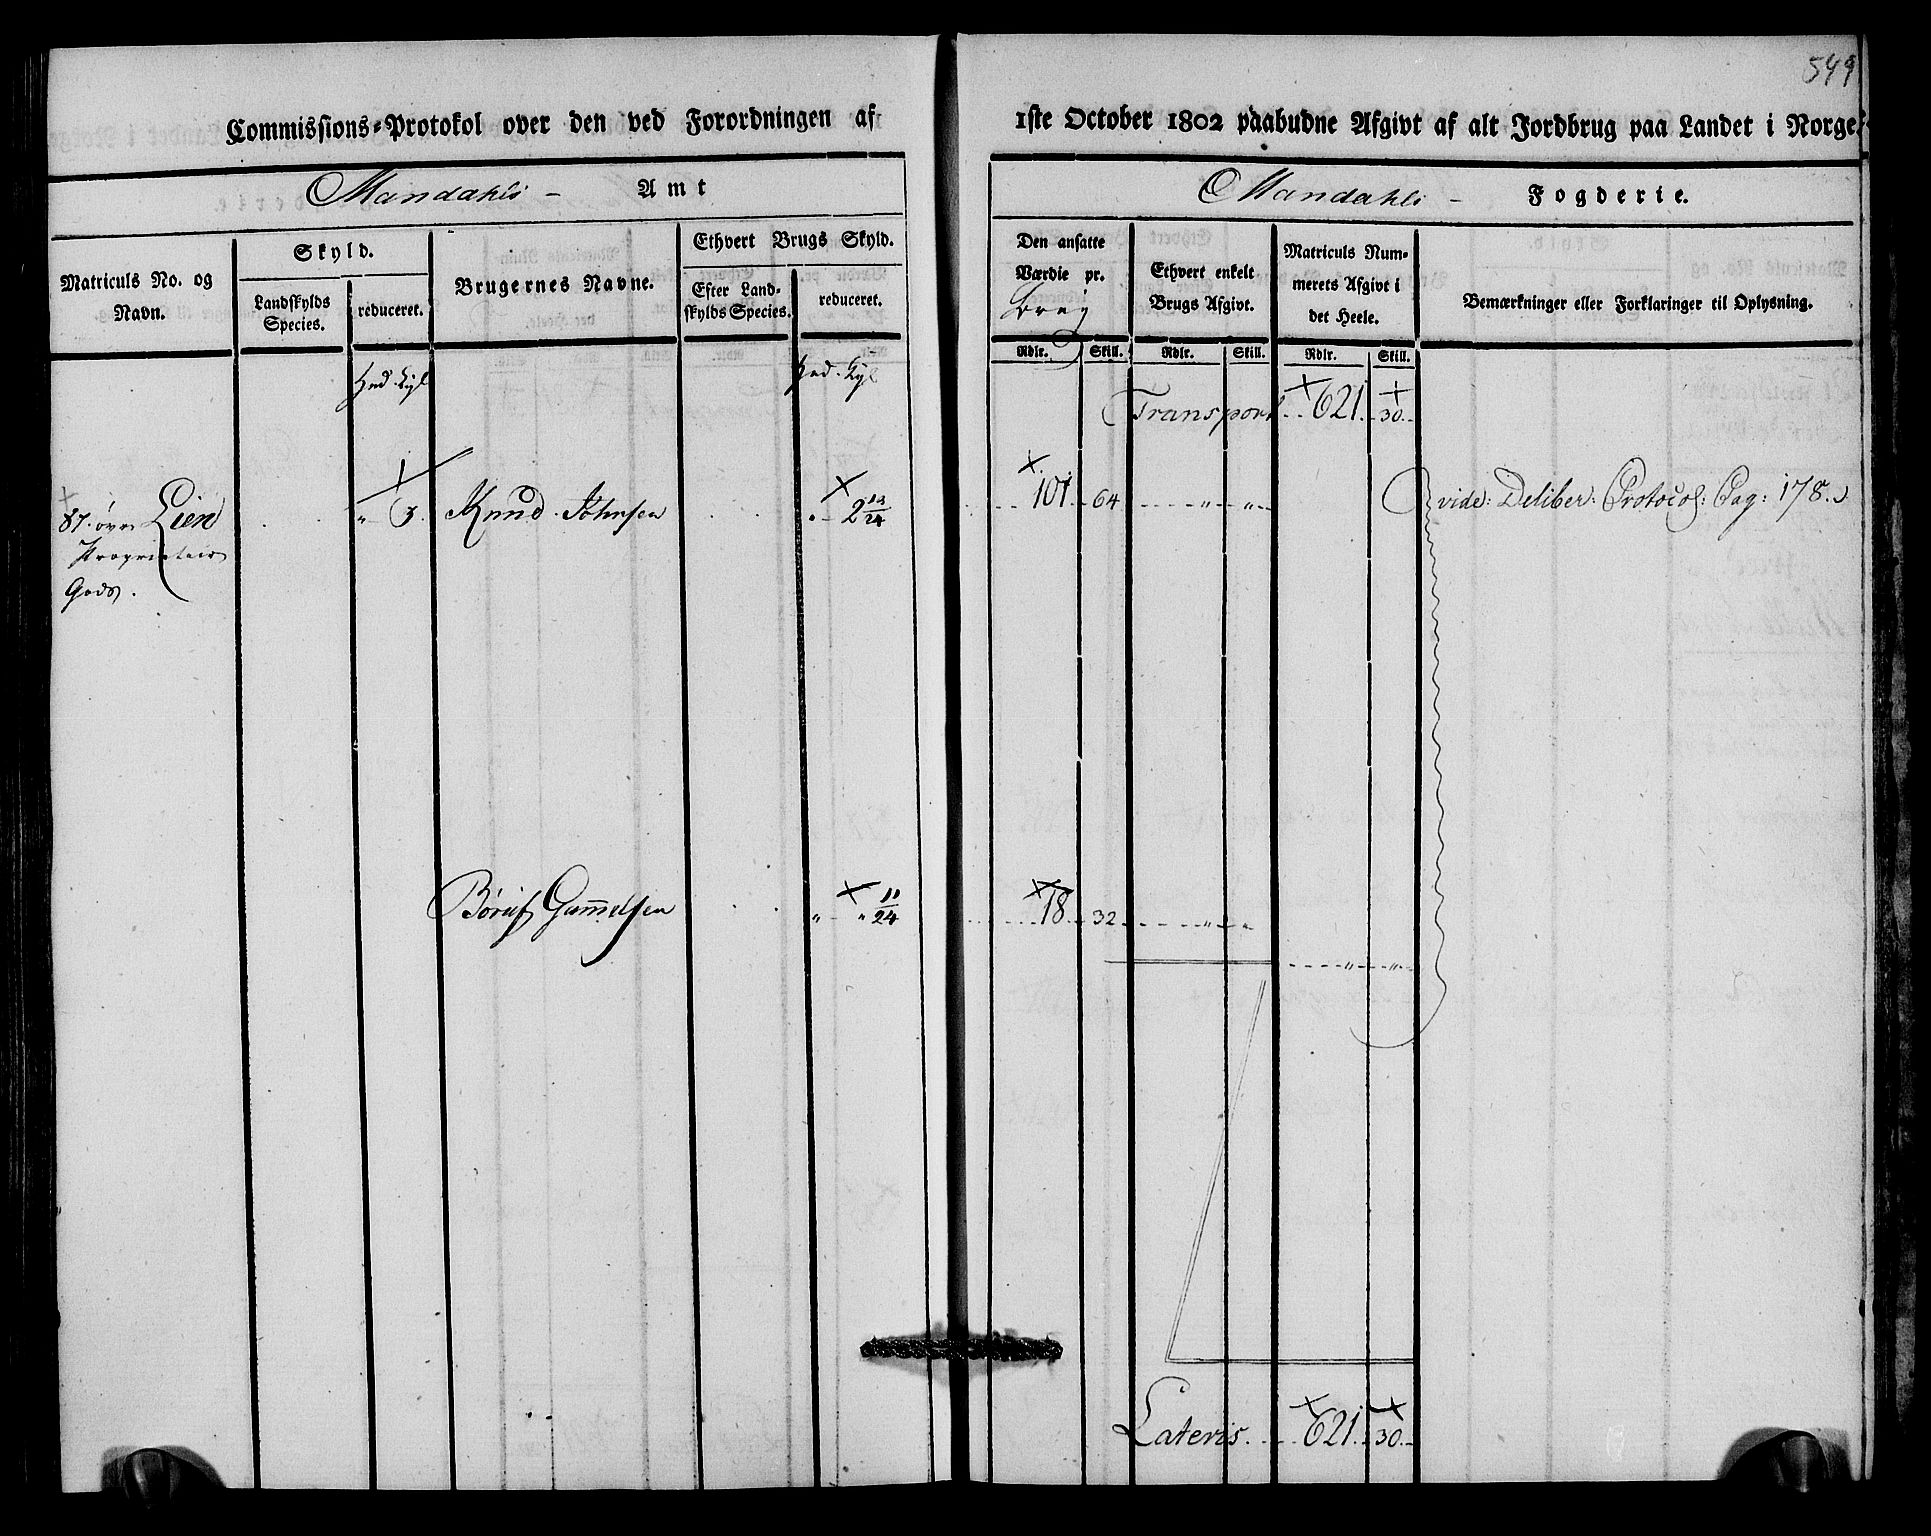 549
Commissions-Protokol over den ved Forordningen af 1ste October 1802 paabudne Afgivt af alt Jordbrug paa Landet i Norge.
Mandahls - Amt
Mandahls - Fogderie.
Matriculs No. og Navn.
Skyld.
Landskylds Species.
reduceret.
Brugernes Navne.
Ethvert Brugs Skyld.
Efter Landskylds Species.
reduceret.
Den ansatte Værdie pr. Brug
Ethvert enkelt Brugs Afgivt.
Matriculs Nummerets Afgivt i det Heele.
Bemærkninger eller Forklaringer til Oplysning.
Rdlr. Skill. Rdlr. Skill. Rdlr. Skill.
Hud. Kyl
Hud. Kyl
Transport 621. 30.
87. øvre Lien " 3. Knud Johnsen 2 13/24 101. 64 " " vide: Deliber: Protocol: Pag: 178.
Proprietair
Gods.
Børuf Gunnelsen " " 11/24 18 32 " "
" "
Lateris. 621. 30.